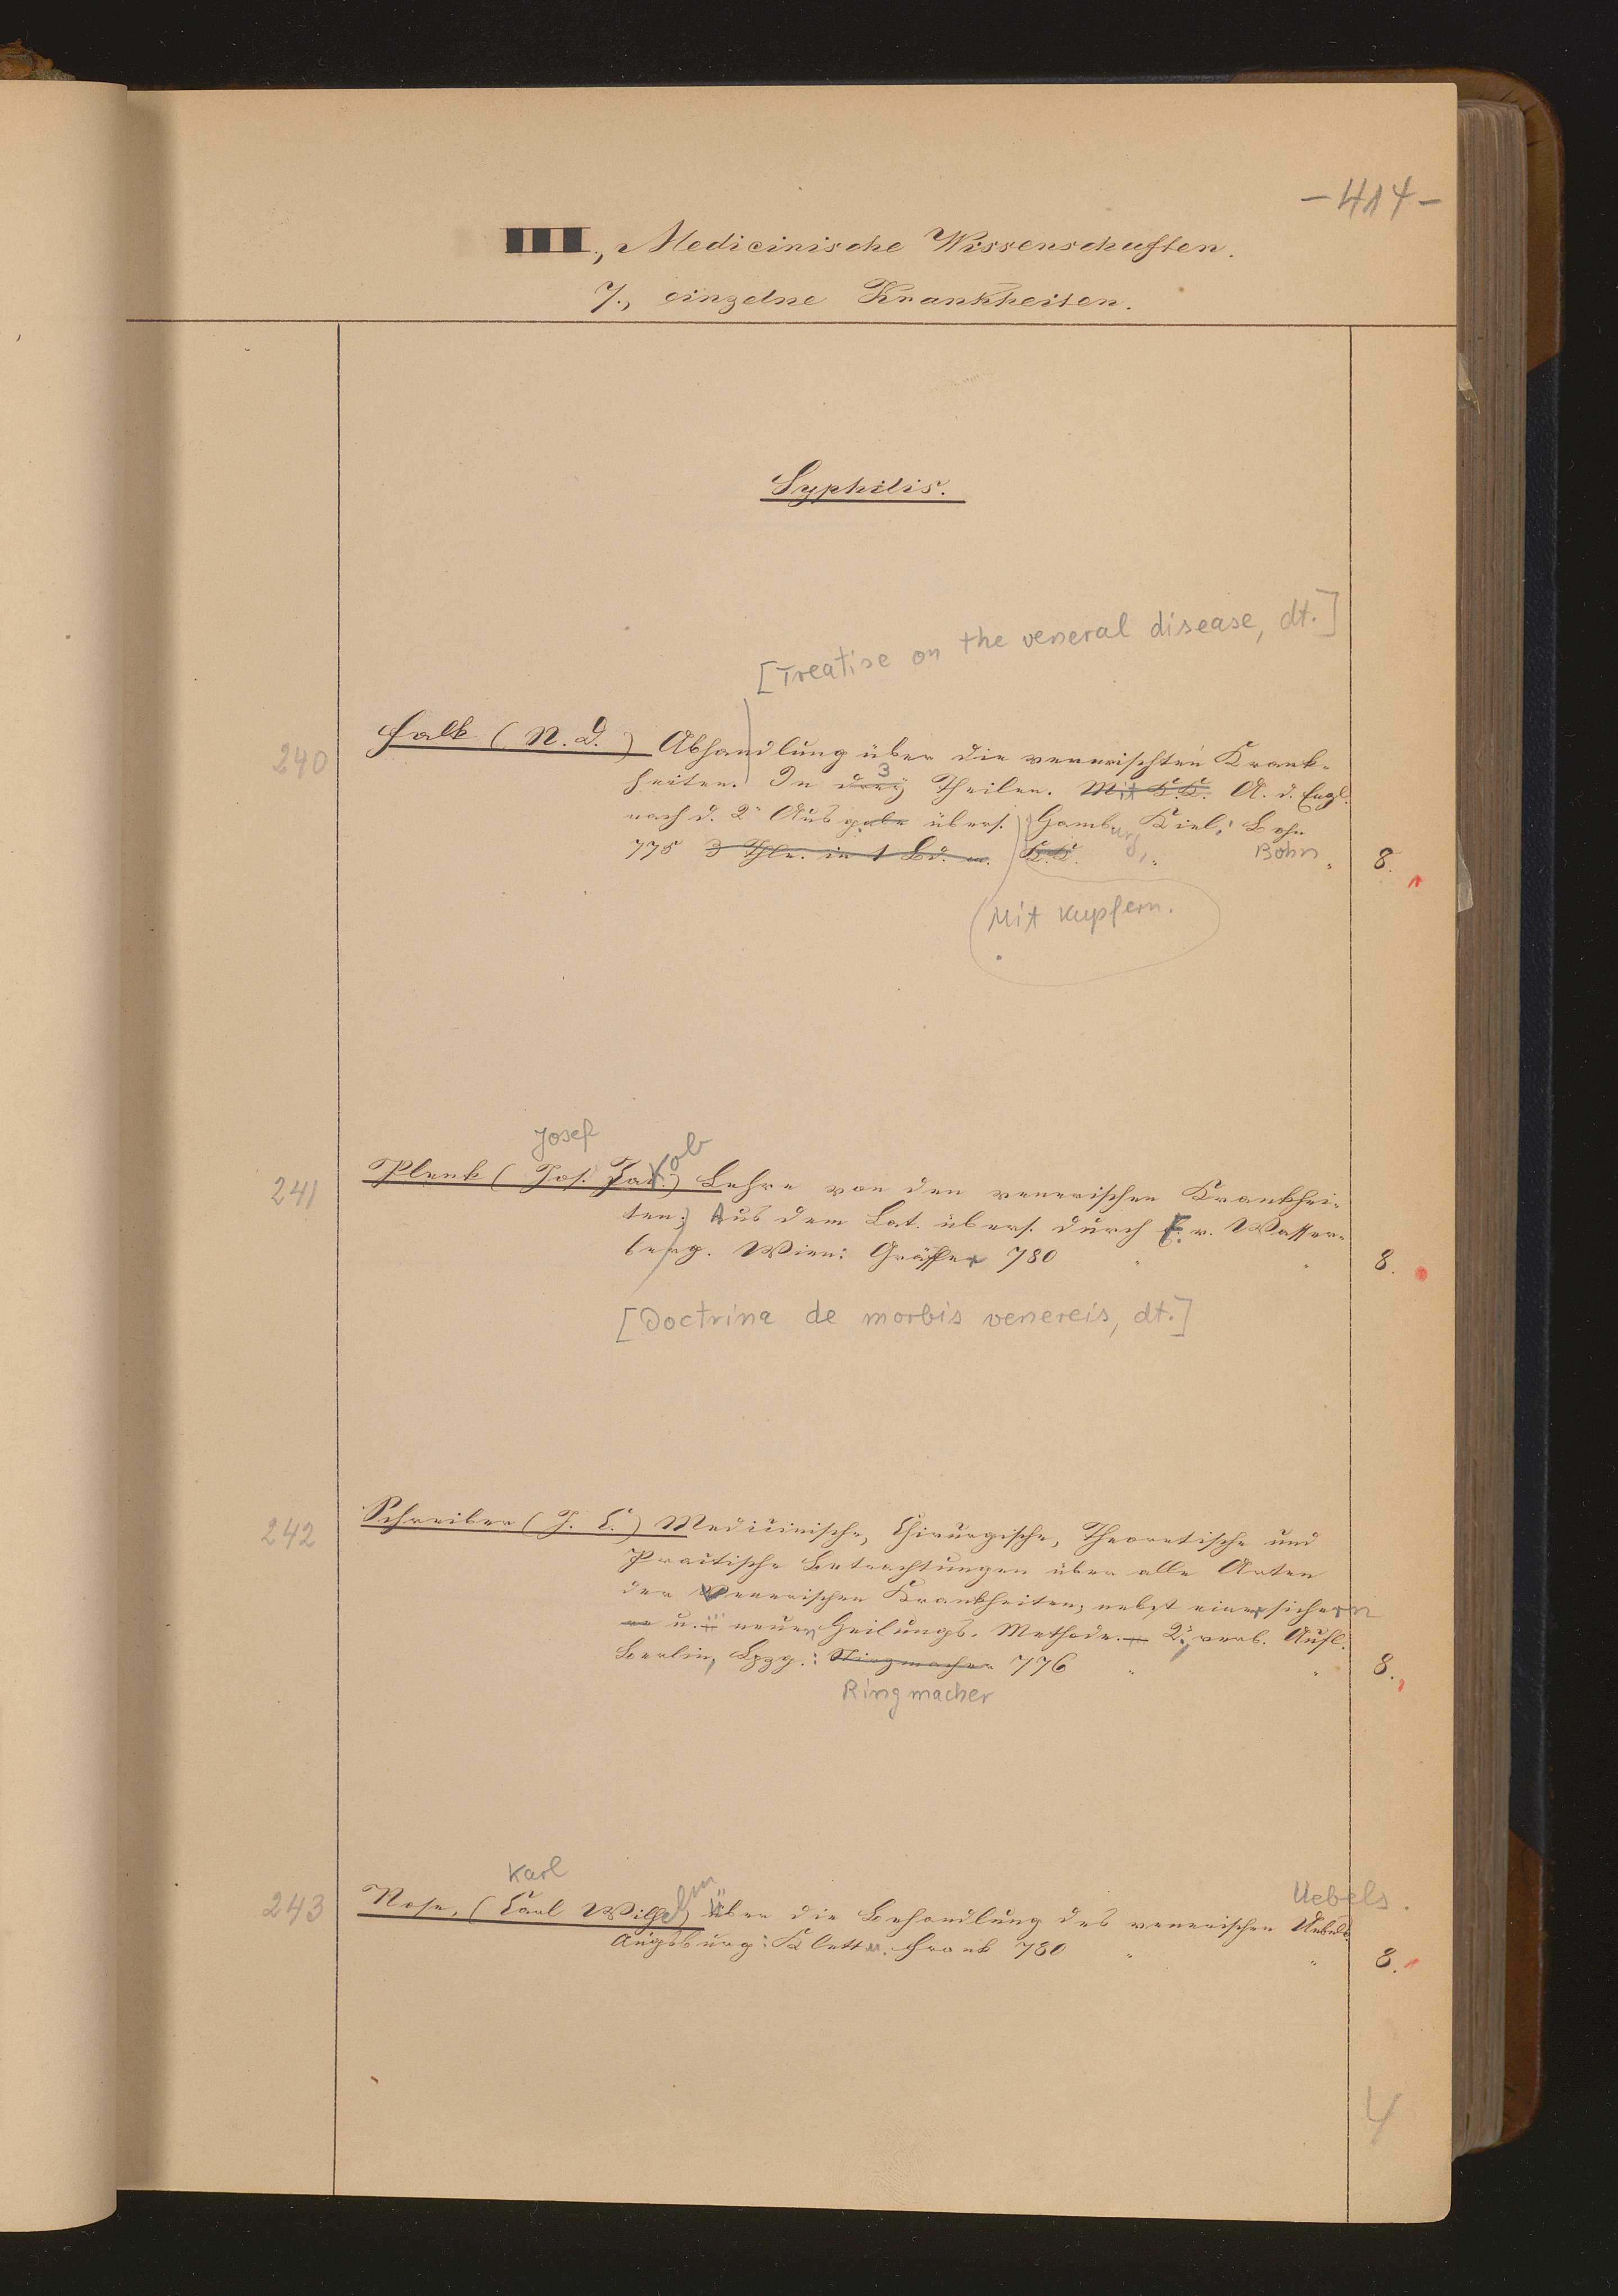 - 414 -
III., Medicinische Wissenschaften.
7., einzelne Krankheiten.
Syphilis.
[Treatise on the veneral disease, dt.]
240 Falk (N. D.) Abhandlung über die venerischen Krank-
heiten. In drey 3 Theilen. Mit K.K. A. d. Engl.
nach d. 2n Ausgabe übers. Hamburg, Kiel: Bohn
775 3 Thle. in 1 Bd. m. K.K. " Bohn " 8.
Mit Kupfern.
Josef
241 Plenk (Jos. Jakob) Lehre von den venerischen Krankhei-
ten. Aus dem Lat. übers. durch F. v. Wasser-
berg. Wien: Gräffer 780 " " 8.
[Doctrina de morbis venereis, dt.]
242 Schreiber (J. C.) Medicinische, Chirurgische, Theoretische und
Practische Betrachtungen über alle Arten
der Venerischen Krankheiten, nebst einer sichern
u. neuen Heilungs-Methode. 2., verb. Aufl.
Berlin, Lpzg.: 776 " " 8.
Ringmacher
Karl Uebels.
243 Nose, (Carl Wilhelm) über die Behandlung des venerischen Uebels.
Augsburg: Klett u. Frank 780 " " 8.
4